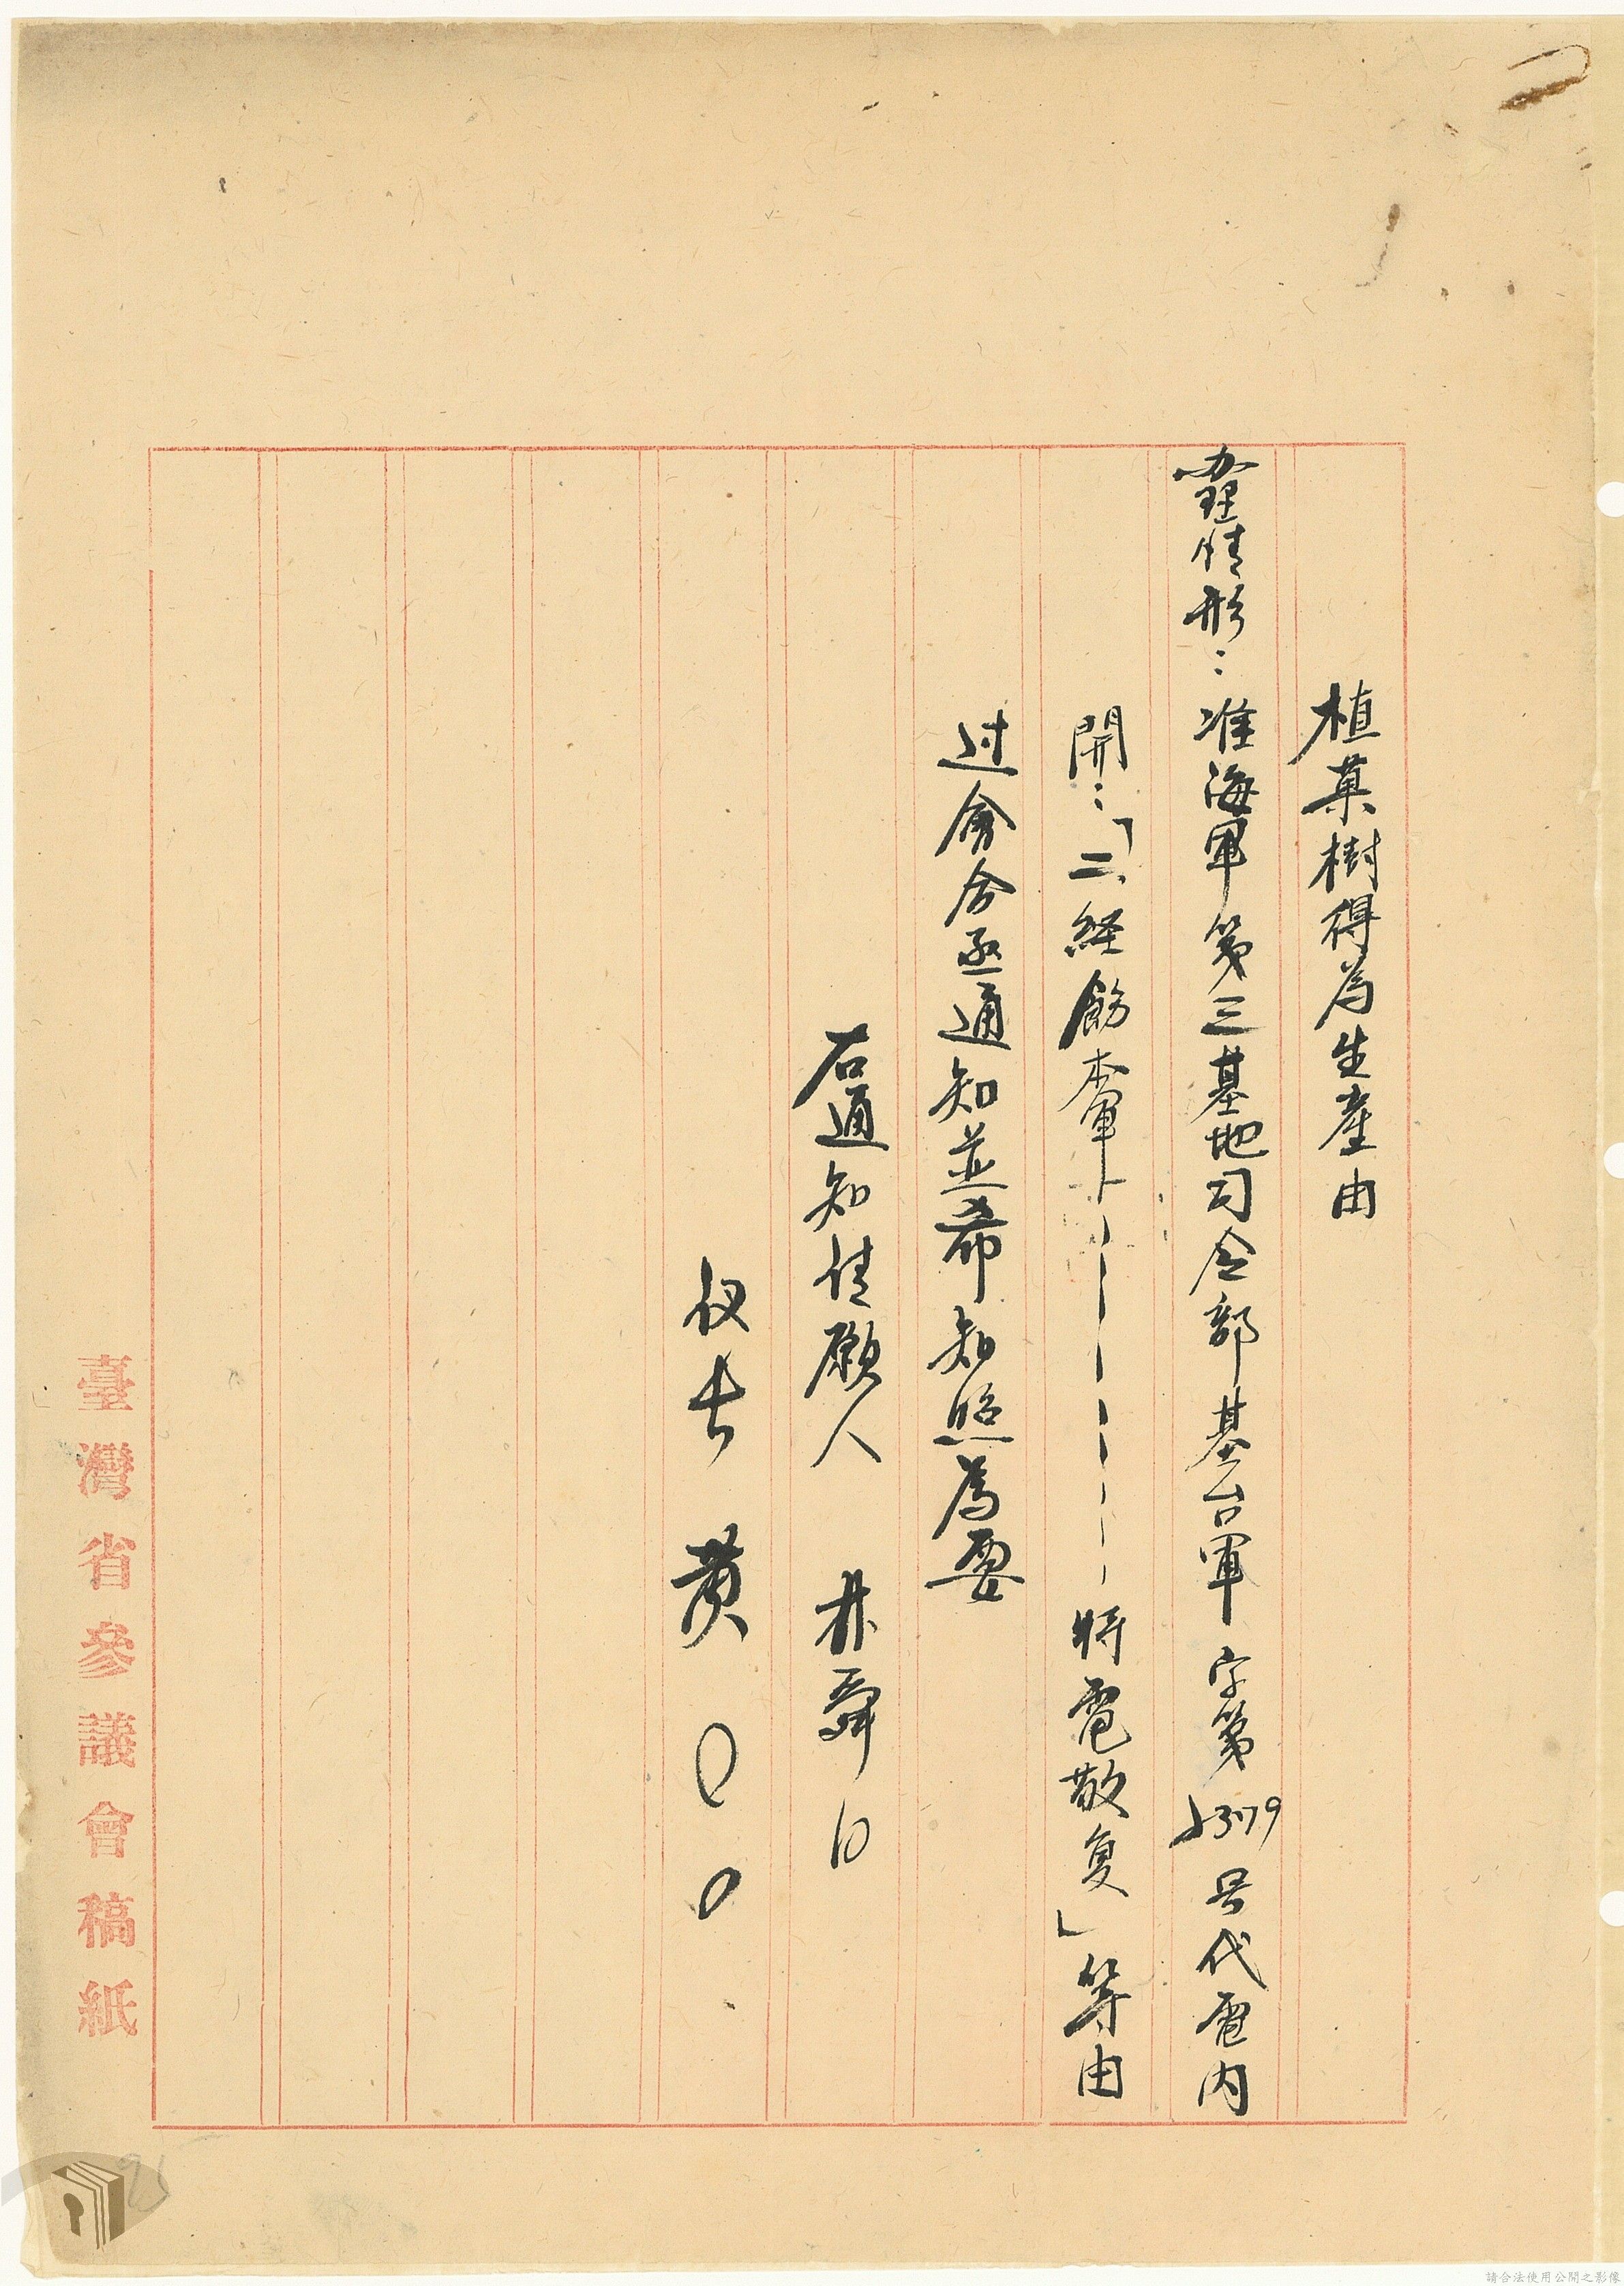 植菓樹得為生產由
辦理情形：准海軍第三基地司令部基台軍字第1379号代電內
開：「二、経飭本軍———————將電敬复」等由
过會合亟通知並希知照為要
右通知请願人　林舜
议长　黄〇〇
臺灣省參議會稿紙
請合法使用公開之影像